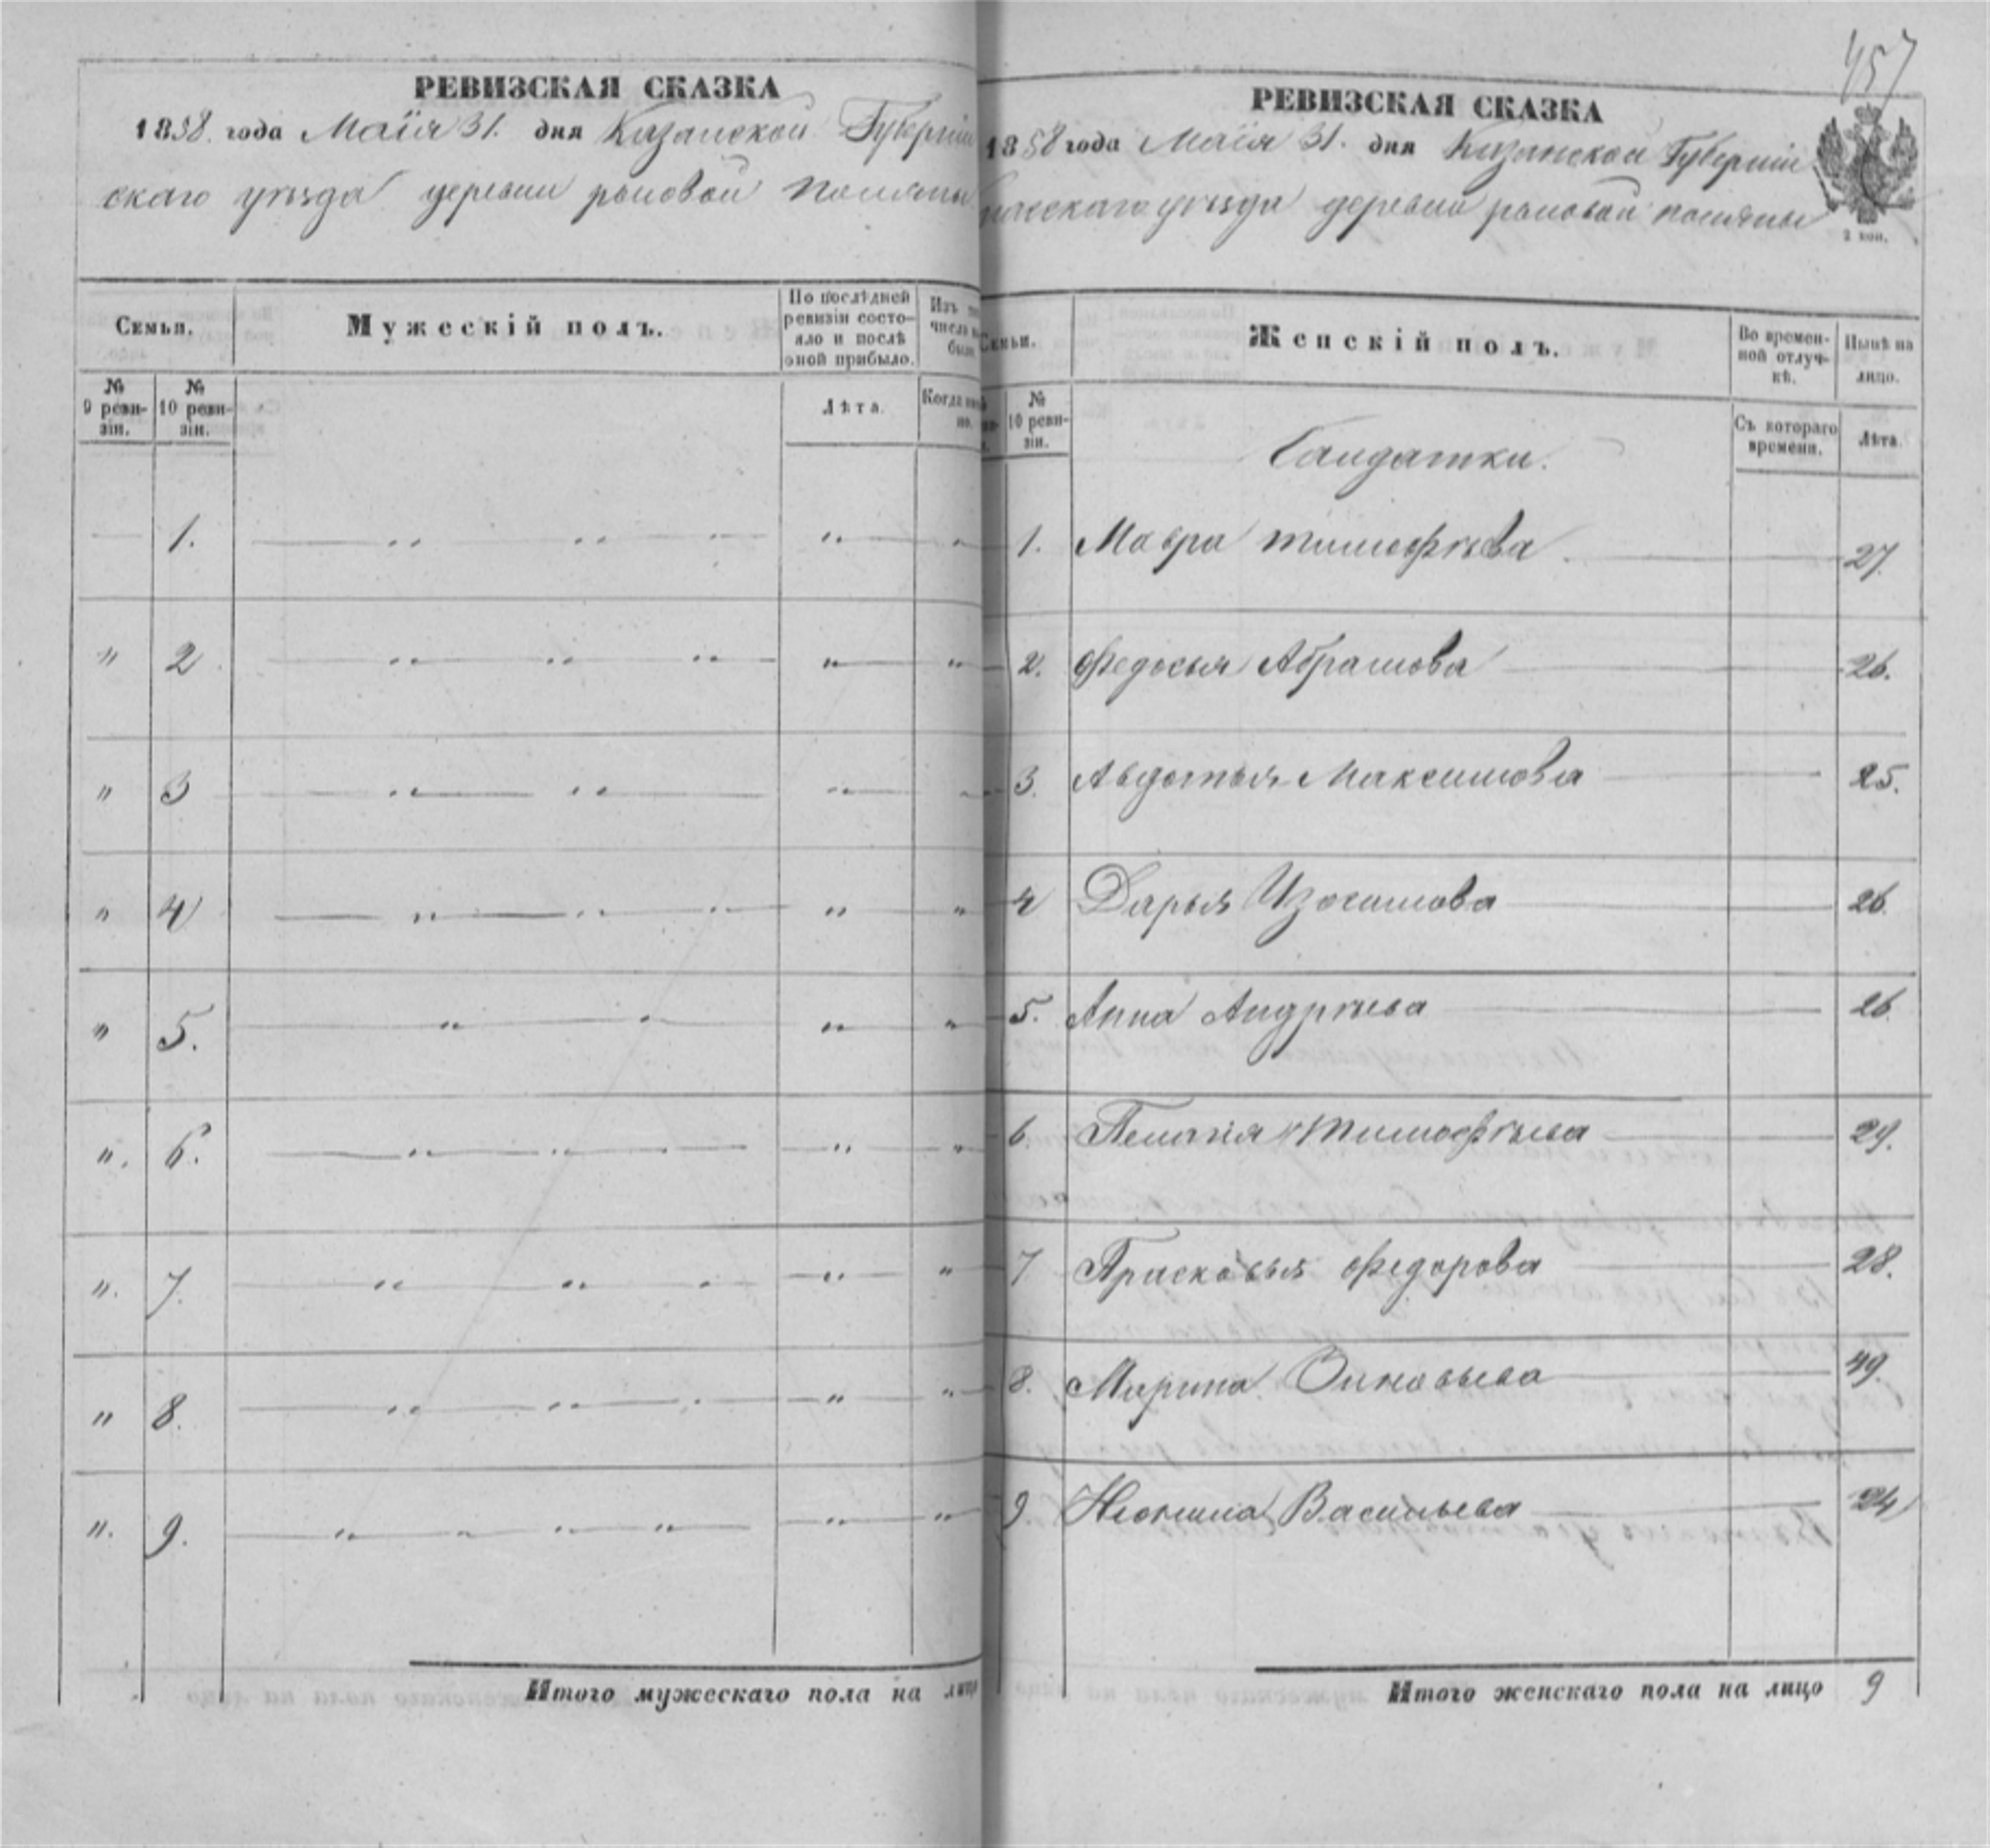 457
РЕВИЗСКАЯ СКАЗКА
1858. года Маія 31. дня Казанской Губерніи
скаго уѣзда деревни рыковой поляны
Семьи.
Мужескій полъ.
По послѣдней ревизіи состо-
яло и послѣ
оной прибыло.
Изъ
числа
№ 9 реви-
зіи.
№ 10 реви-
зіи.
Лѣта.
Когда
1. " " "
" 2 " " " " "
" 3 " " "
" 4 " " " " "
" 5. " " " "
". 6. " " " "
". 7. " " " "
" 8. " " " "
". 9. " " " " " "
Итого мужескаго пола на лицо
РЕВИЗСКАЯ СКАЗКА
1858 года Маія 31. дня Казанской Губерніи
уѣзда деревни рыковой поляны
2 коп.
Семьи.
Женскій полъ.
Во времен-
ной отлуч-
кѣ.
Нынѣ на
лицо.
№
10 реви-
зіи.
Съ котораго
времени.
Лѣта.
Солдатки.
1. Мавра тимофѣева 27.
2. Федосья Абрамова 26.
3. Авдотья Максимова 25.
4 Дарья Изосимова 26.
5. Анна Андрѣева 26
6. Пелагія Тимофѣева 29.
7 Прасковья Федорова 28.
8. Марина Зиновьева 49.
9. Неонила Васильева 24
Итого женскаго пола на лицо 9